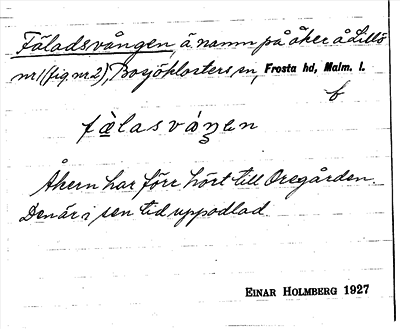 Fäladsvången, ä namn på åker å Lillö
nr 1 (fig nr 2), Bosjöklosters sn, Frosta hd, Malm. l.
b
fàlasváŋen
Åkern har förr hört till Oregården.
Den är i sen tid uppodlad.
EINAR HOLMBERG 1927